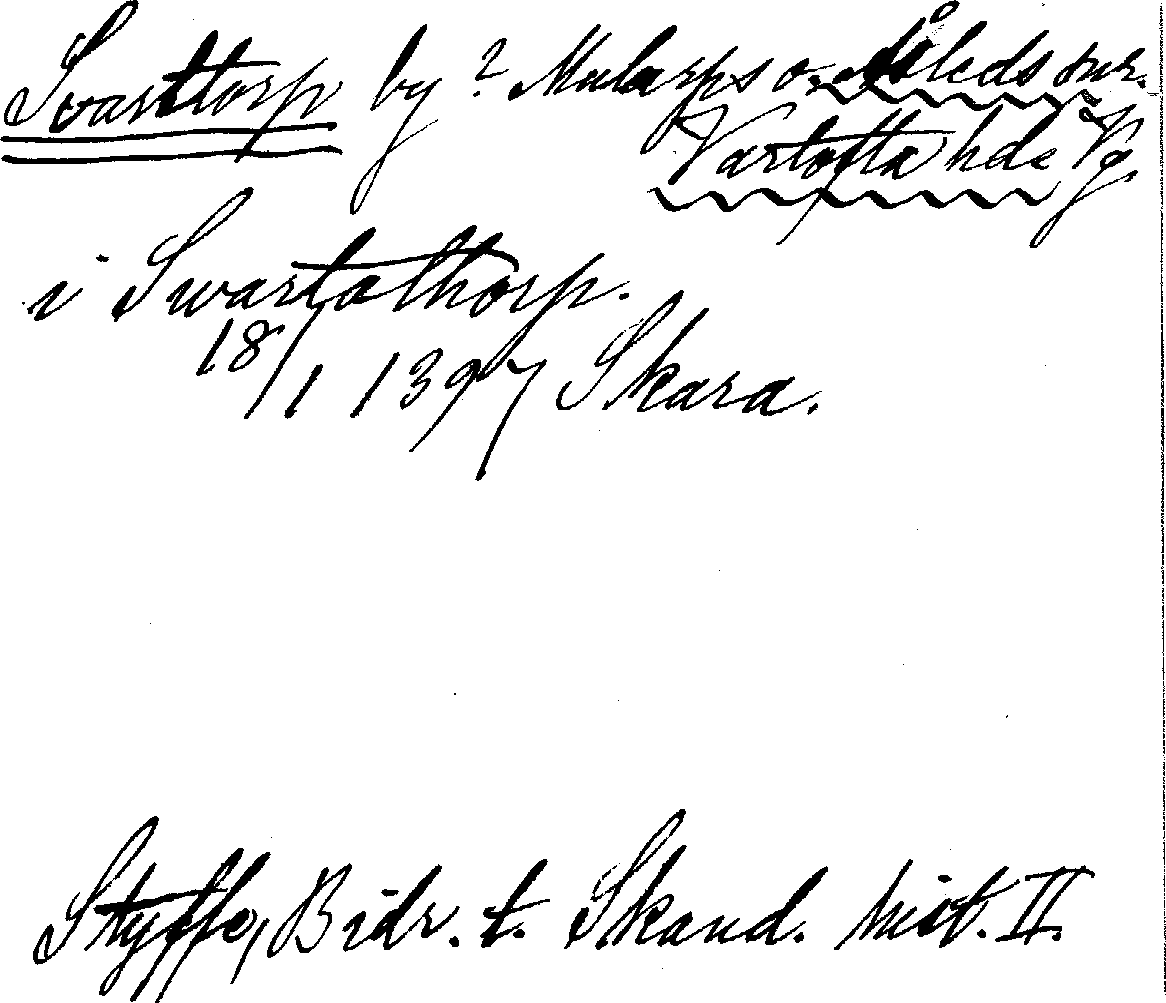 Svarttorp by? Mularps o. Åsleds snr.
Vartofta hd. Vg.
i Swartathorp.
18/1 1397 Skara.
Styffe, Bidr. t. Skand. hist. II.